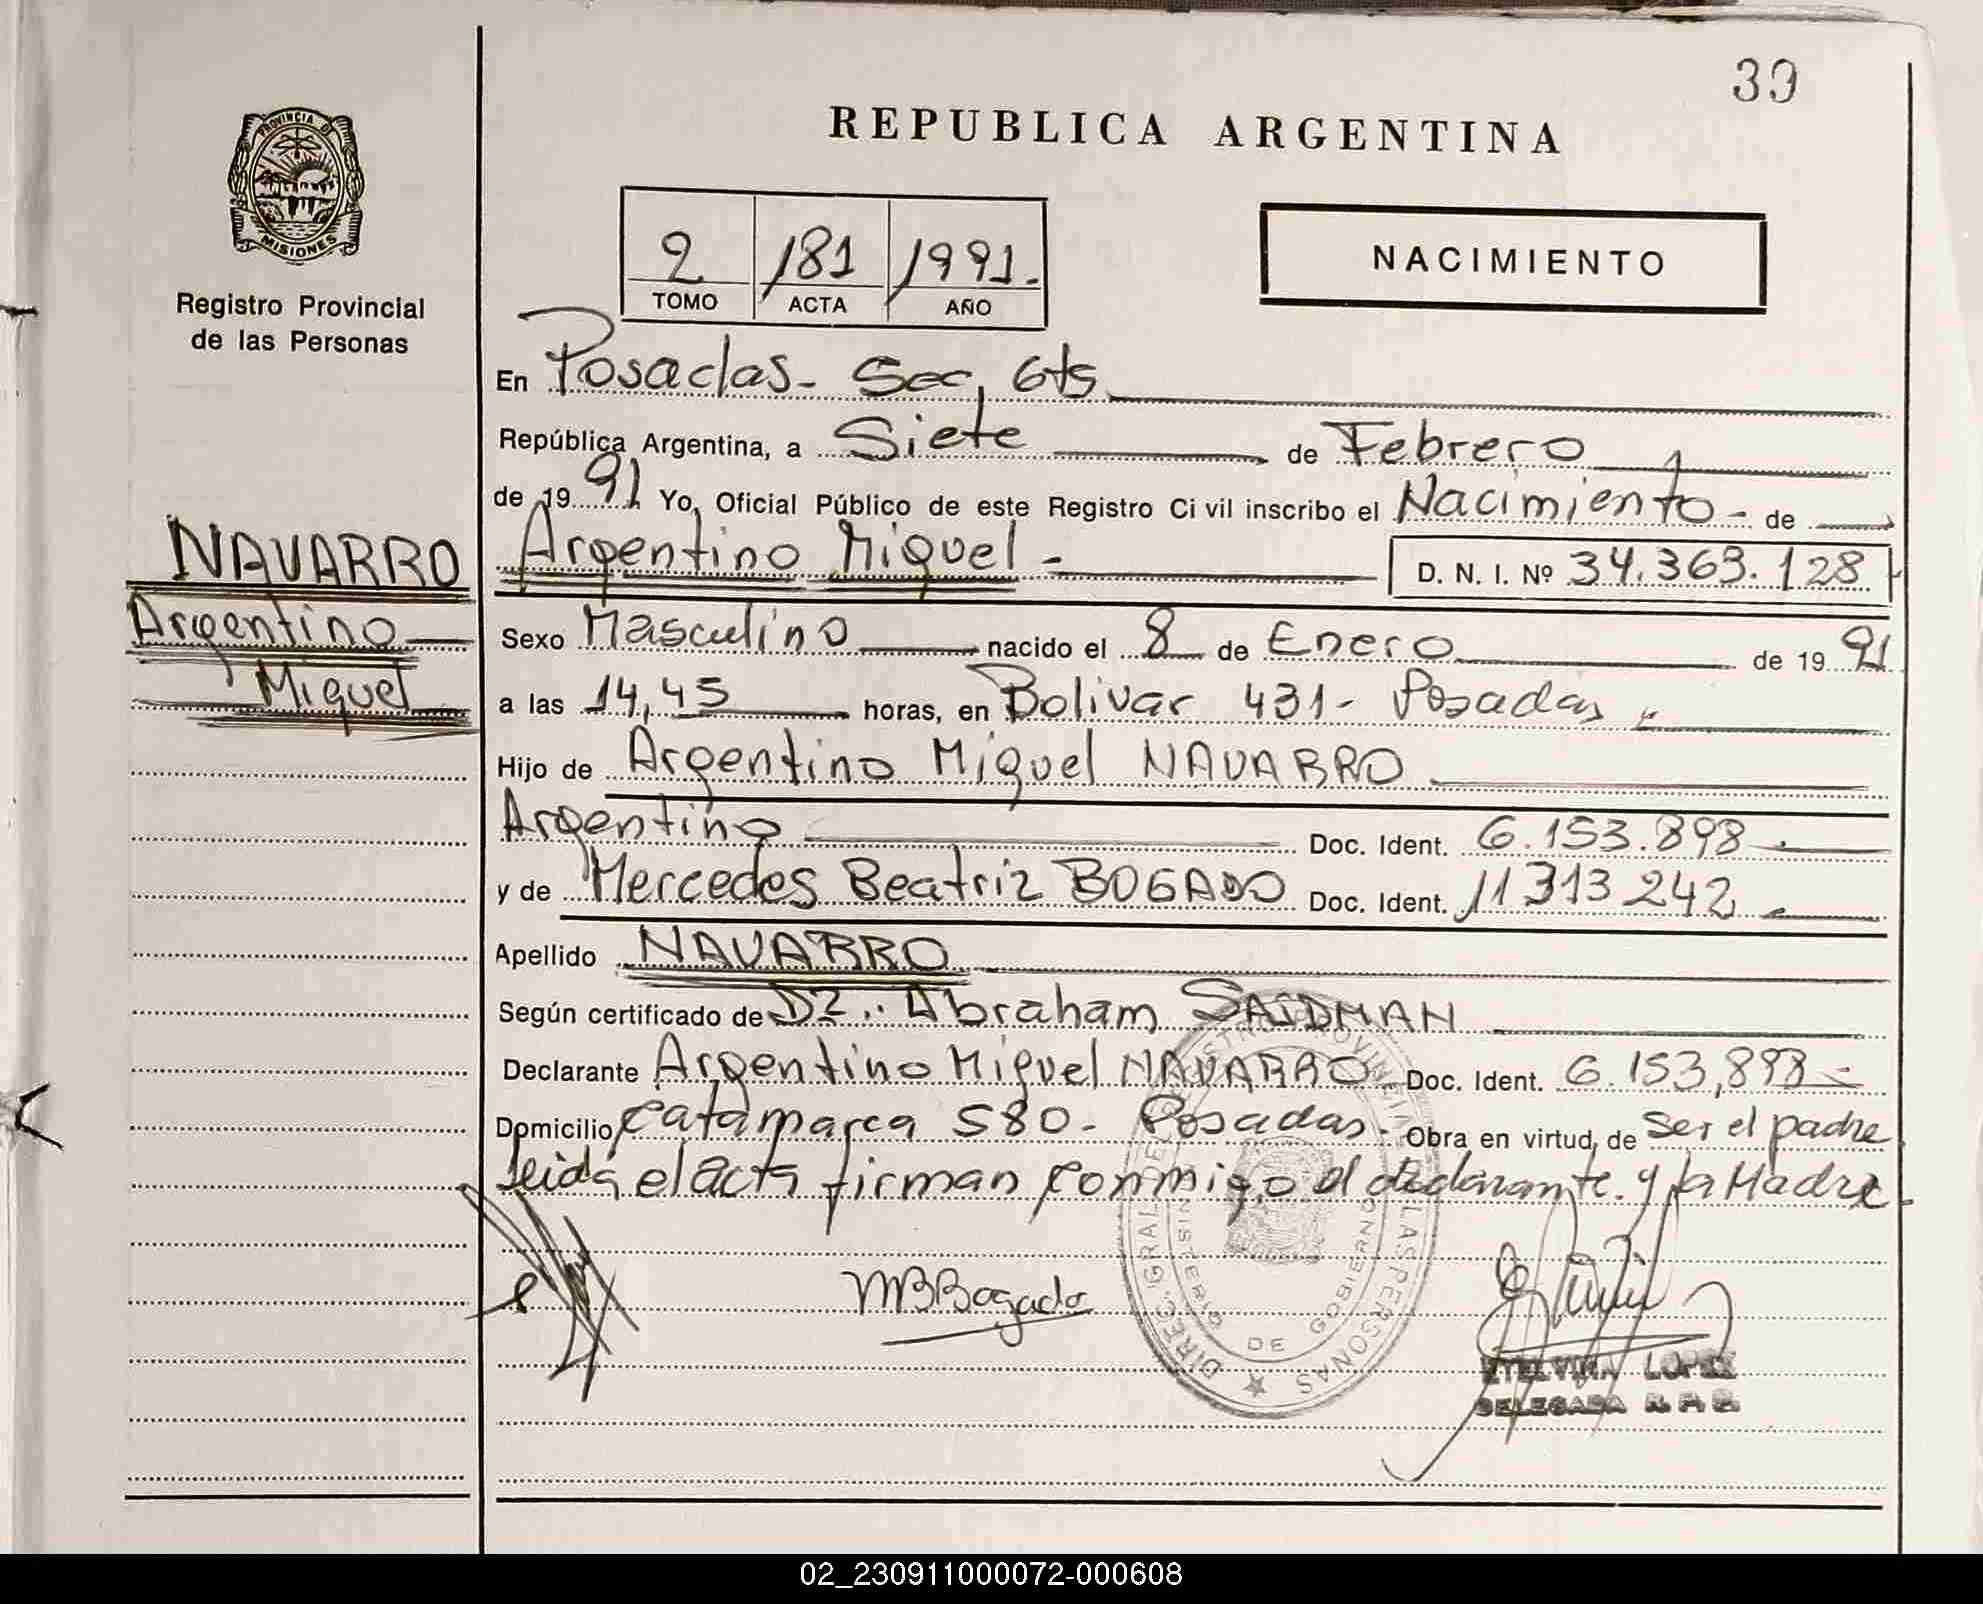 39
REPUBLICA ARGENTINA
PROVINCIA D
MISIONES
Registro Provincial
de las Personas
2 181 1991.
TOMO ACTA AÑO
NACIMIENTO
En Posadas - Sec, 6ts
República Argentina, a Siete de Febrero
de 19 91 Yo, Oficial Público de este Registro Civil inscribo el Nacimiento - de
NAVARRO
Argentino
Miguel
Argentino Miguel - D. N. I. Nº 34.363.128
Sexo Masculino nacido el 8 de Enero de 19 91
a las 14,45 horas, en Bolivar 431 - Posadas
Hijo de Argentino Miguel NAVARRO
Argentino Doc. Ident. 6.153.898
y de Mercedes Beatriz BOGADO Doc. Ident. 11313242
Apellido NAVARRO
Según certificado de Dr. Abraham SAIDMAN
Declarante Argentino Miguel NAVARRO Doc. Ident. 6.153,898 -
Domicilio Catamarca 580 - Posadas - Obra en virtud de ser el padre
leida el acta firman conmigo el declarante y la Madre
MBBogado
DIREC. GRAL. DE LAS PERSONAS
DE GOBIERNO
ETELVINA LOPEZ
DELEGADA R. P. P.
02_230911000072-000608